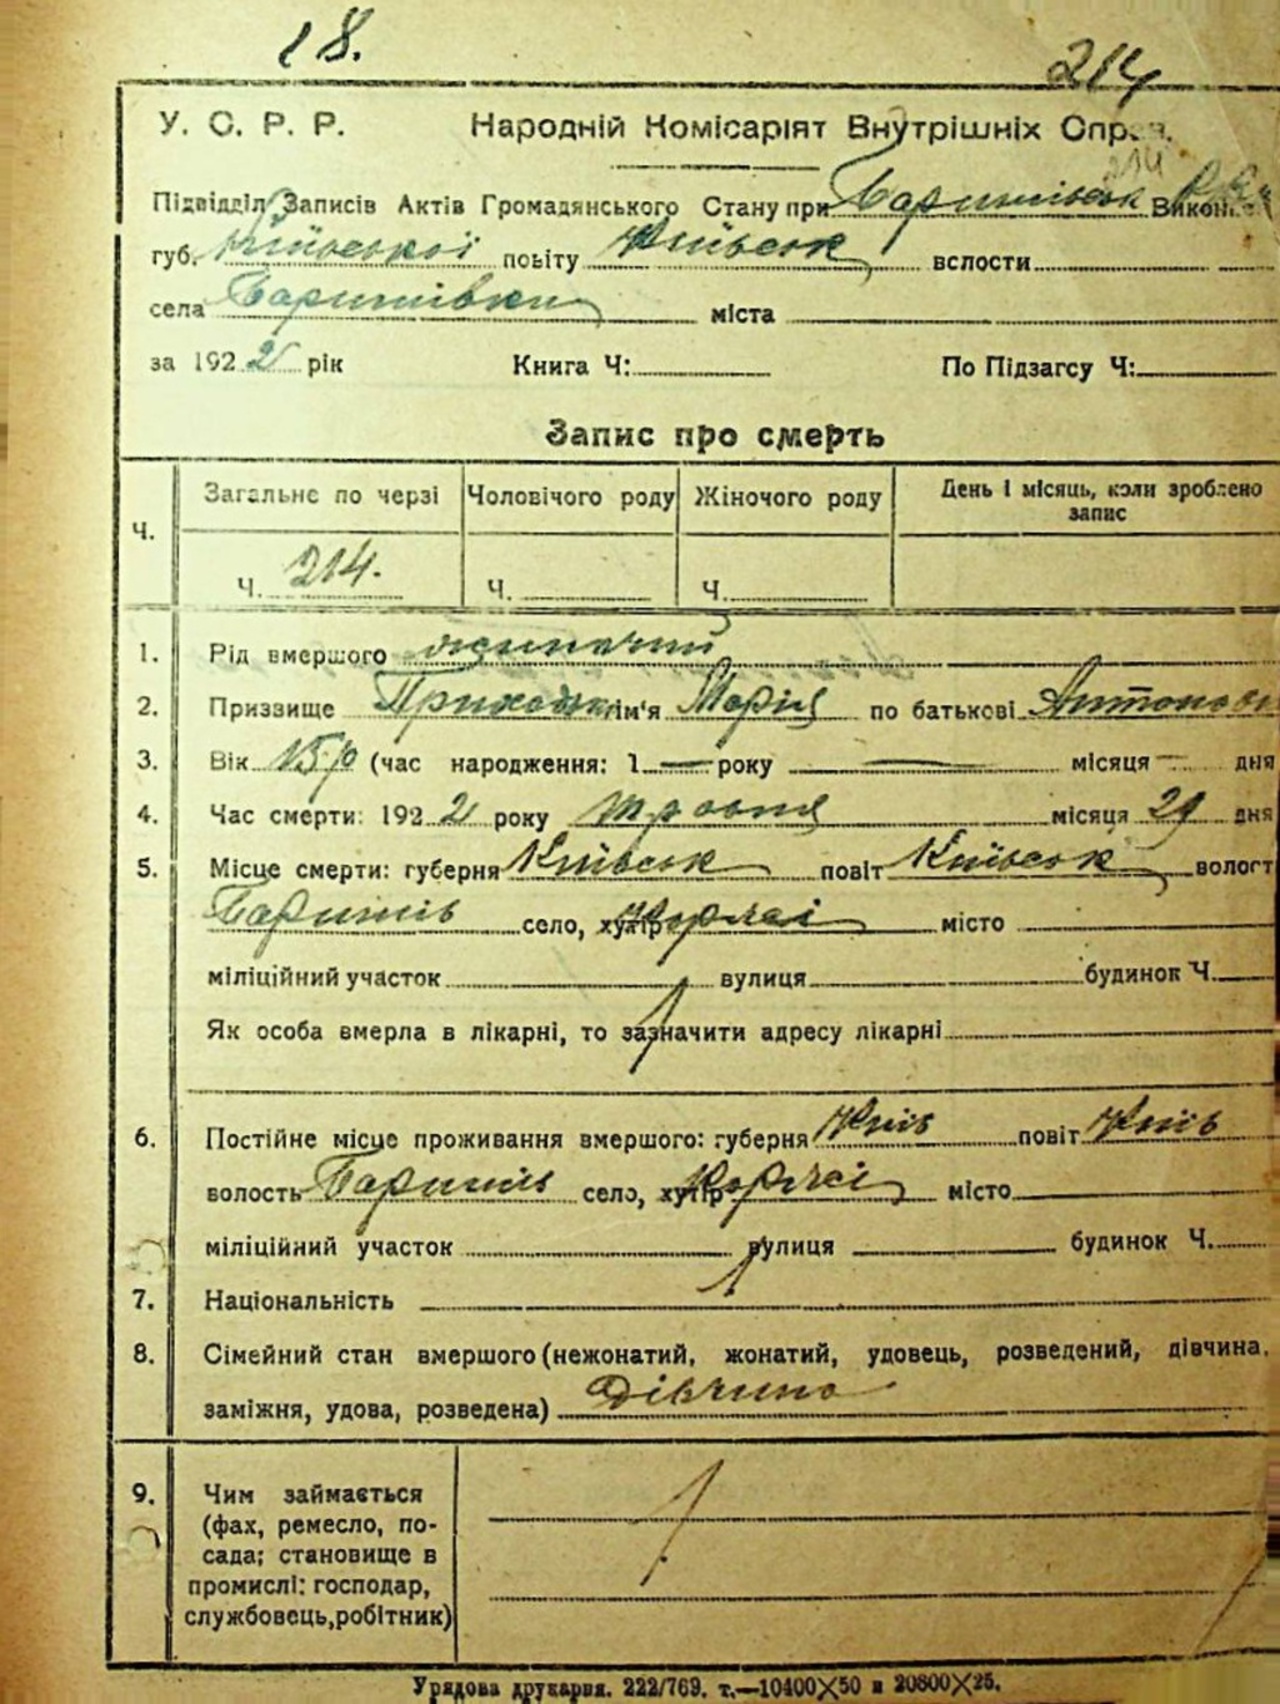 18.
214
У. С. Р. Р. Народній Комісаріят Внутрішніх Справ.
214
Підвідділ Записів Актів Громадянського Стану при Баришівськ Викон
губ. Київської повіту Київськ вслости
села Баришівки міста
за 1922 рік Книга Ч: По Підзагсу Ч:
Запис про смерть
Ч. Загальне по черзі Чоловічого роду Жіночого роду День і місяць, коли зроблено запис
Ч. 214. Ч. Ч.
1. Рід вмершого жиночий
2. Призвище Приходьк ім'я Марія по батькові Антонови
3. Вік 15 р (час народження: 1 — року — місяця — дня
4. Час смерти: 1922 року травня місяця 29 дня
5. Місце смерти: губерня Київськ повіт Київськ волост
Баришів село, хутір Коржі місто
міліційний участок вулиця будинок Ч.
Як особа вмерла в лікарні, то зазначити адресу лікарні
6. Постійне місце проживання вмершого: губерня Київ повіт Київ
волость Баришів село, хутір Коржі місто
міліційний участок вулиця будинок Ч.
7. Національність
8. Сімейний стан вмершого (нежонатий, жонатий, удовець, розведений, дівчина,
заміжня, удова, розведена) Дівчина
9. Чим займається
(фах, ремесло, по-
сада; становище в
промислі: господар,
службовець, робітник)
Урядова друкарня. 222/769. т.—10400X50 и 20800X25.